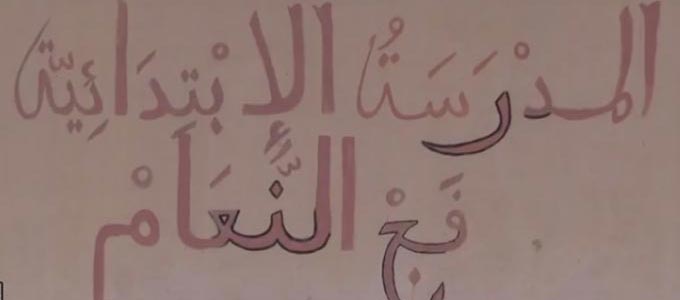 المدْرَسَةُ الإِبْتِدَائِيَّة
فَجْ النَّعَامْ